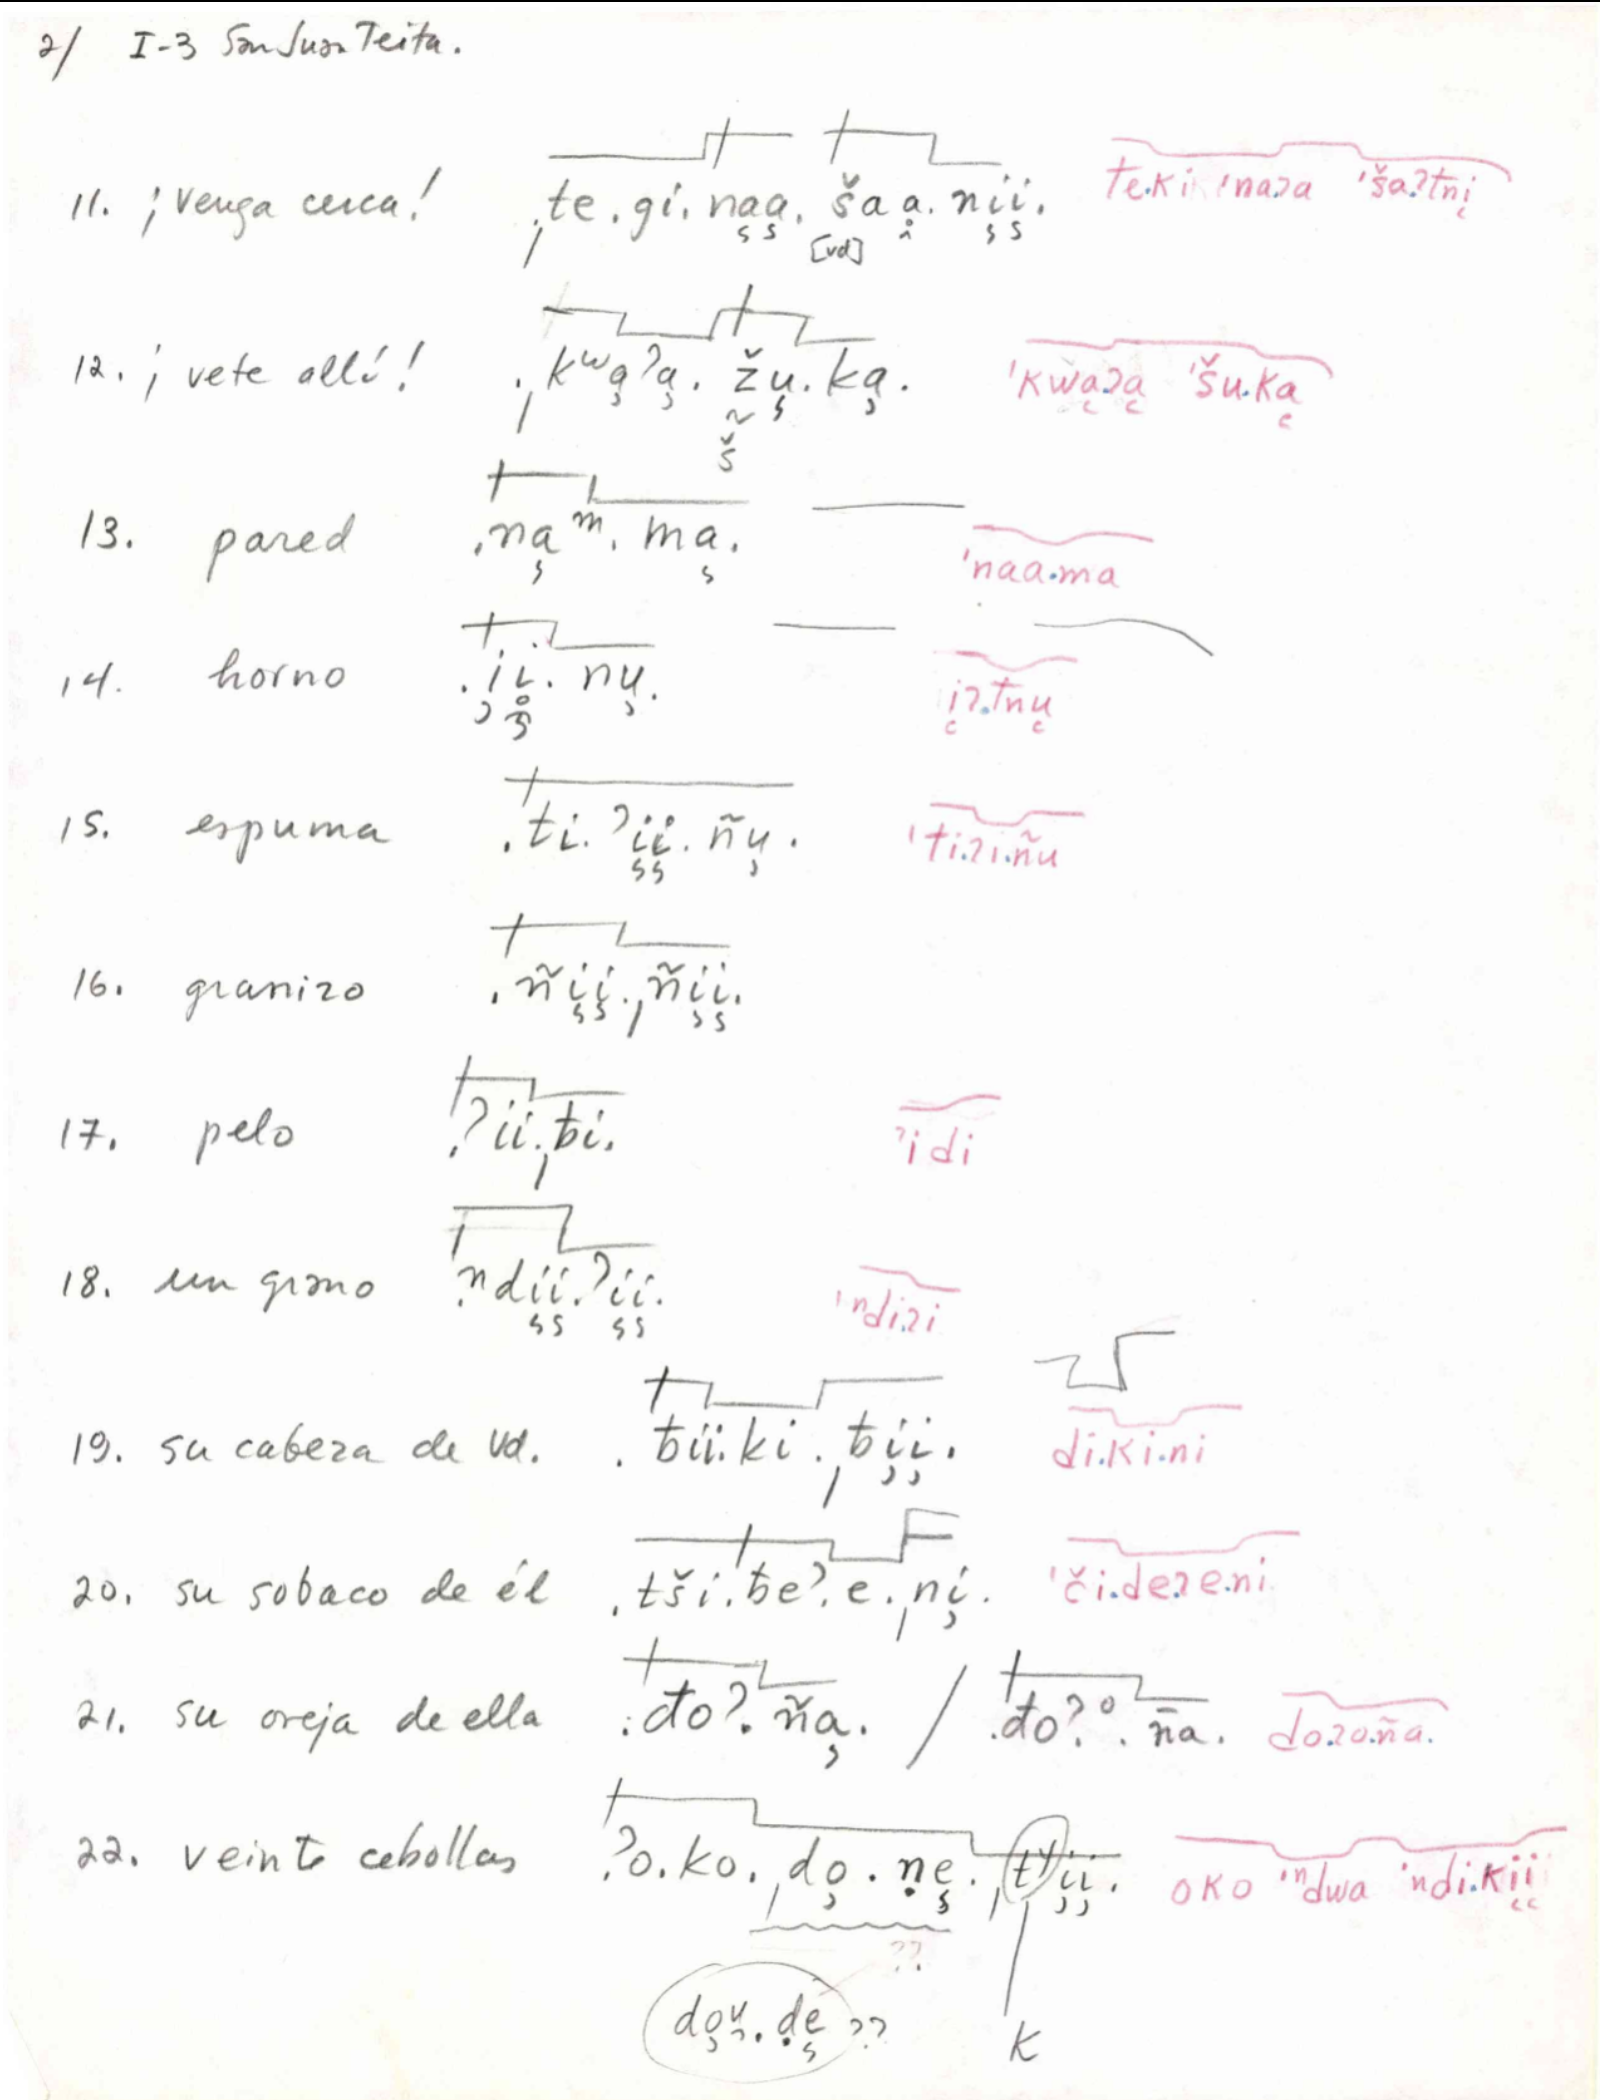 2/ I-3 San Juan Teita.
11. ¡Venga cerca! .te.gi.nąą.šaḁ.nįį. te.ki 'naʔa 'ša.ʔtnį
[vd]
12. ¡vete allí! .kʷąʔą.žų.ką. 'kwą.ʔą 'šu.ką
~
š
13. pared .ną ᵐ.mą. 'naa.ma
14. horno .įi̥.nų. įʔ.tnų
15. espuma .ti.ʔįį.ñų. 'ti.ʔi.ñu
16. granizo .ñįį.ñįį.
17. pelo .ʔii.ƀi. ʔidi
18. un grano .ⁿdįį.ʔįį. 'ⁿdi.ʔi
19. su cabeza de Vd. .ƀii.ki.ƀįį. di.ki.ni
20. su sobaco de él .tši.ƀeʔ.e.nį. 'či.de.ʔe.ni
21. su oreja de ella .đoʔ.ñą. / .đoʔ.ᵒ.ña. do.ʔo.ña.
22. veinte cebollas .ʔo.ko.dǫ.ṇę.tʸįį. oko 'ⁿdwa 'ndi.kįį
??
dǫų.ḍę ??
k